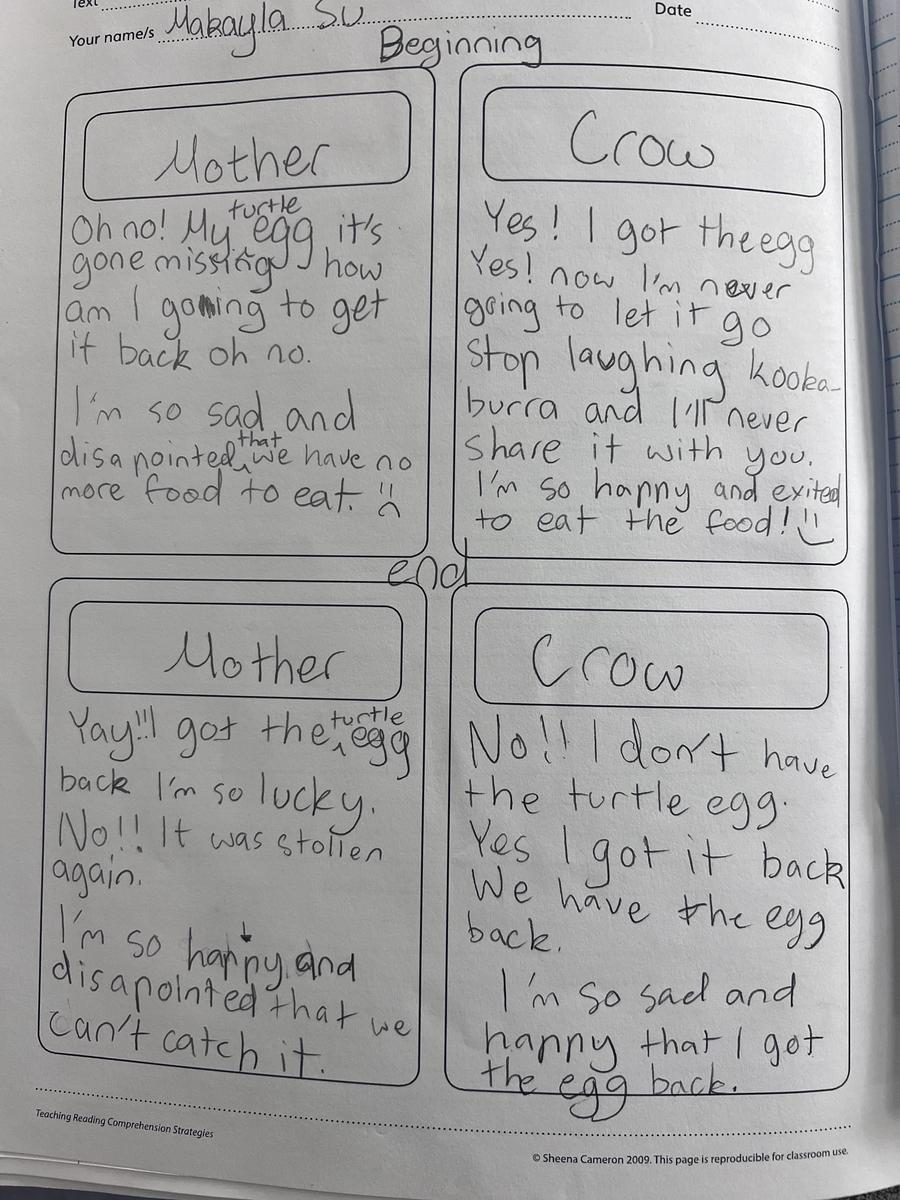 Text
Your name/s Makayla Su
Date
Beginning
Mother
Oh no! My turtle egg it's
gone missing how
am I going to get
it back oh no.
I'm so sad and
disapointed that we have no
more food to eat.
Crow
Yes! I got the egg
Yes! now I'm never
going to let it go
Stop laughing kooka-
burra and I'll never
share it with you.
I'm so happy and exited
to eat the food!
end
Mother
Yay!!! I got the turtle egg
back I'm so lucky.
No!! It was stollen
again.
I'm so happy and
disapointed that we
can't catch it.
Crow
No!! I don't have
the turtle egg.
Yes I got it back
We have the egg
back.
I'm so sad and
happy that I got
the egg back.
Teaching Reading Comprehension Strategies
© Sheena Cameron 2009. This page is reproducible for classroom use.